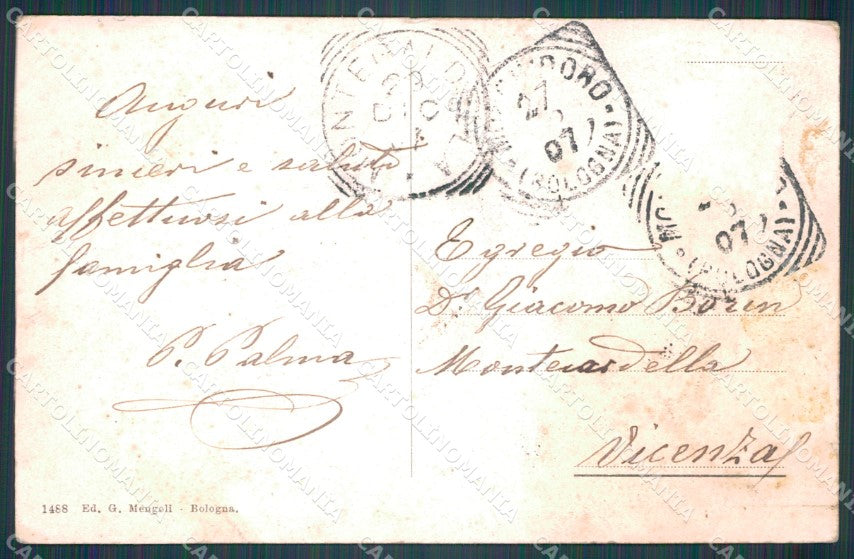 Auguri
sinceri e saluti
affettuosi alla
famiglia
P. Palma
Egregio
Dr Giacomo
Vicenza
1488 Ed. G. Mengoli - Bologna.
20
DIC
07
(BOLOGNA)
07
(BOLOGNA)
CARTOLINOMANIA